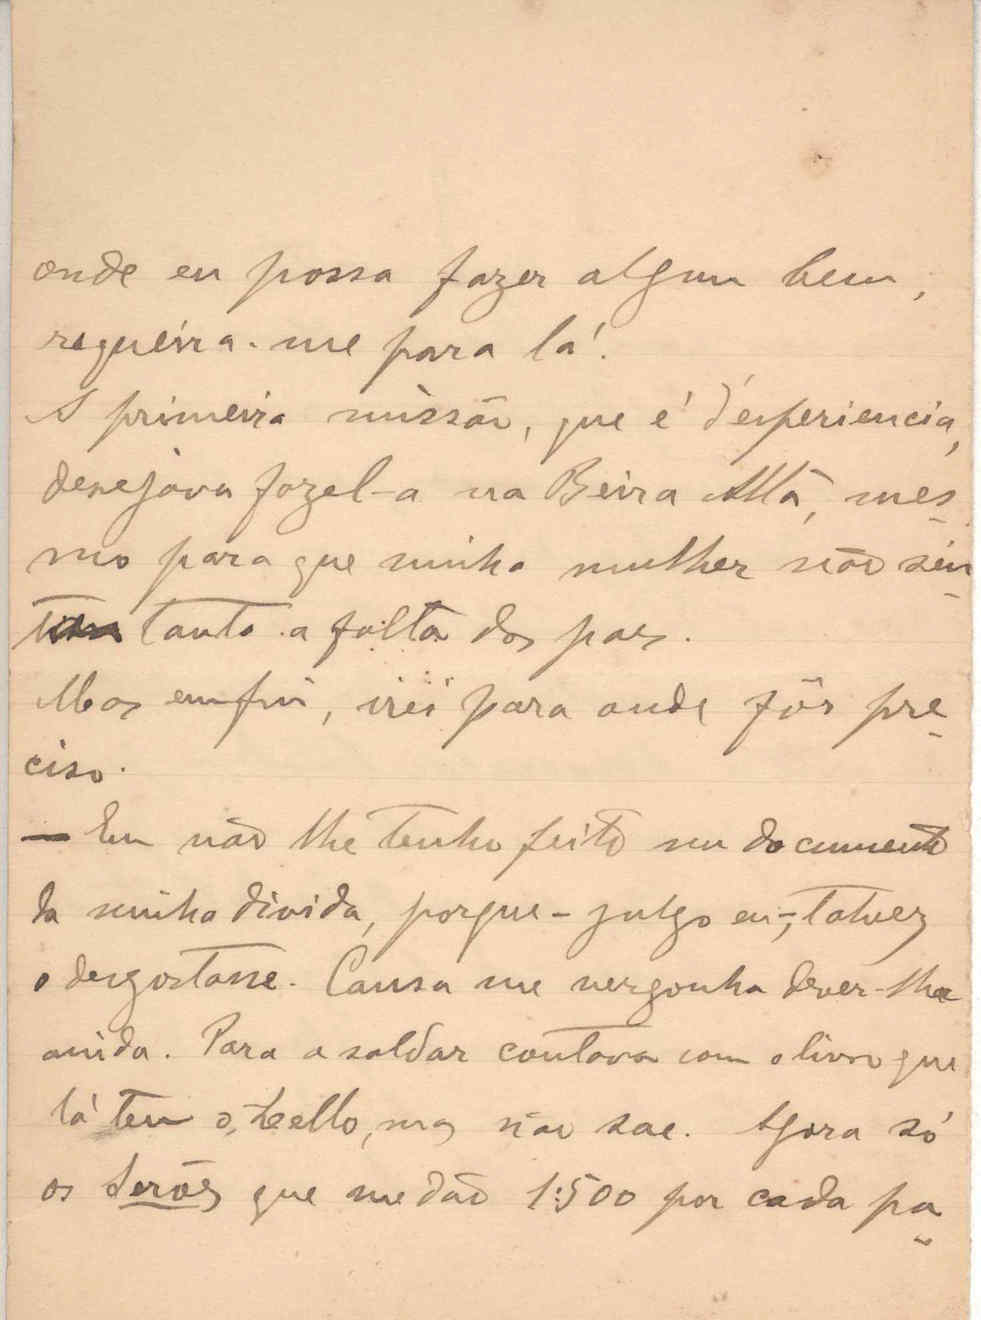 onde eu possa fazer algum bem,
requeira-me para lá.
A primeira missão, que é d'experiencia,
desejava fazel-a na Beira Alta, mes-
mo para que minha mulher não sin-
tisse tanto a falta dos paes.
Mas emfim, irei para onde fôr pre-
ciso.
— Eu não lhe tenho feito um documento
da minha divida, porque - julgo eu -, talvez
o desgostasse. Causa me vergonha dever-lha
ainda. Para a saldar contava com o livro que
lá tem o Lello, mas não sae. Agora só
os Serões que me dão 1:500 por cada pa-